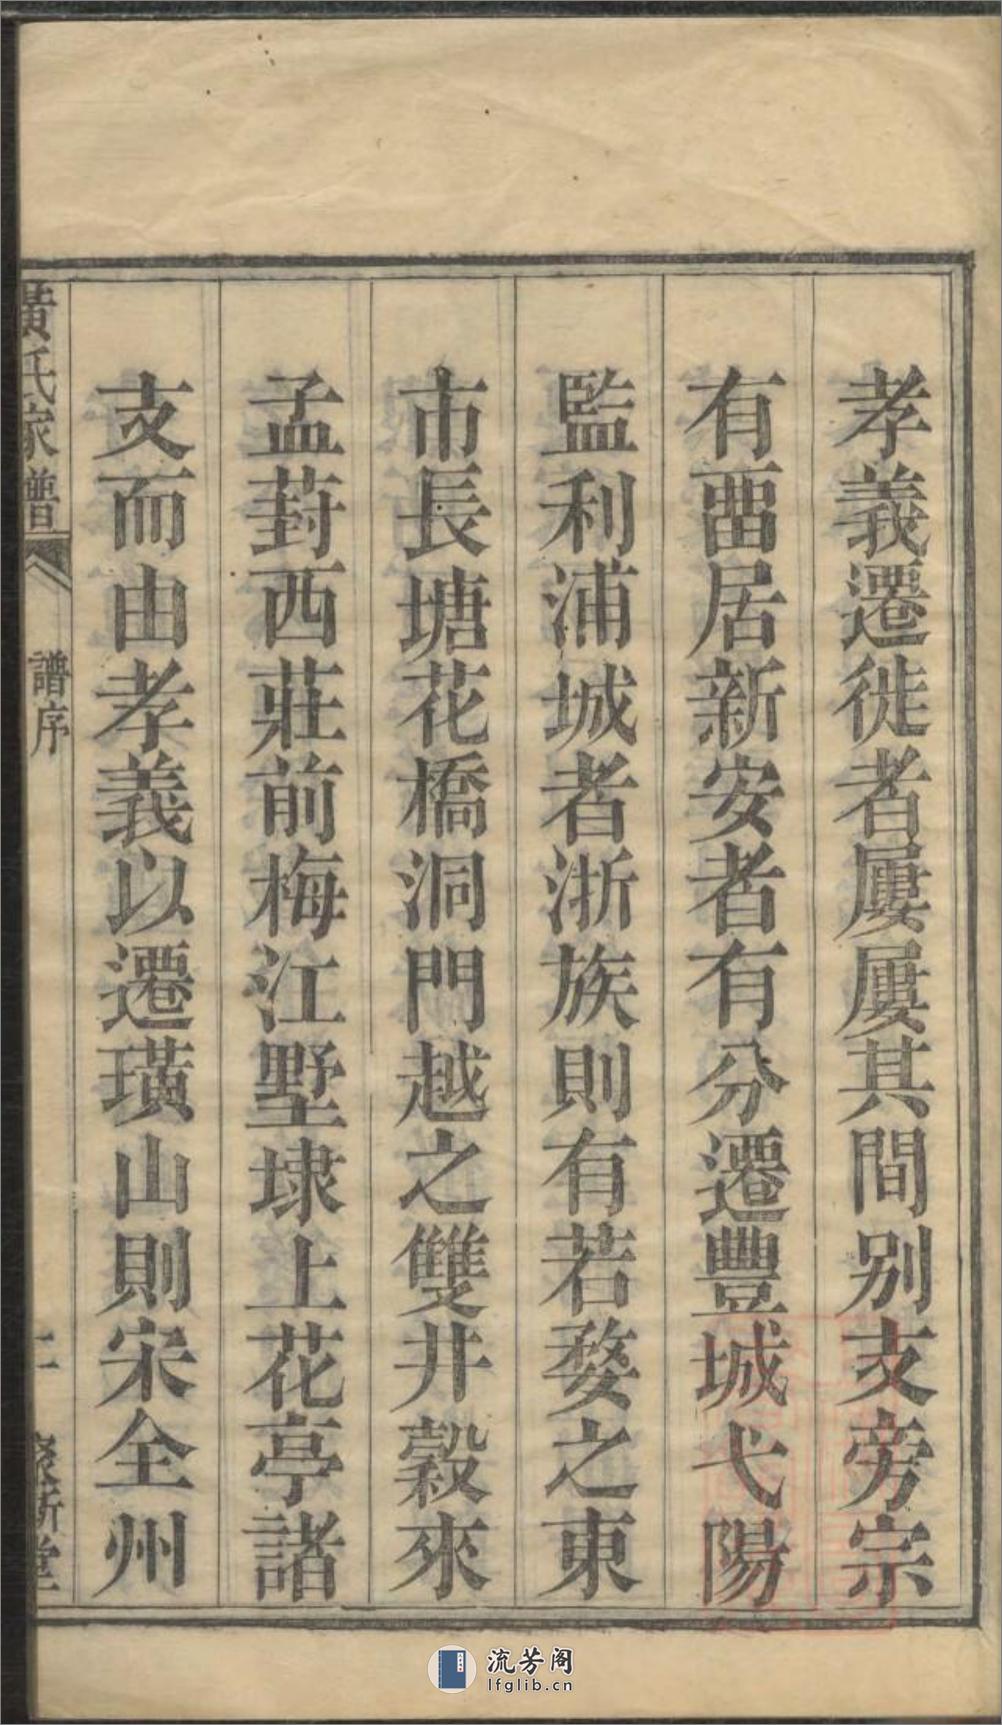 孝義遷徙者屢屢其間別支旁宗
有畱居新安者有分遷豐城弋陽
監利浦城者浙族則有若婺之東
市長塘花橋洞門越之雙井穀來
孟葑西莊前梅江墅埭上花亭諸
支而由孝義以遷璜山則宋全州
黃氏家譜
譜序
流芳阁
lfglib.cn